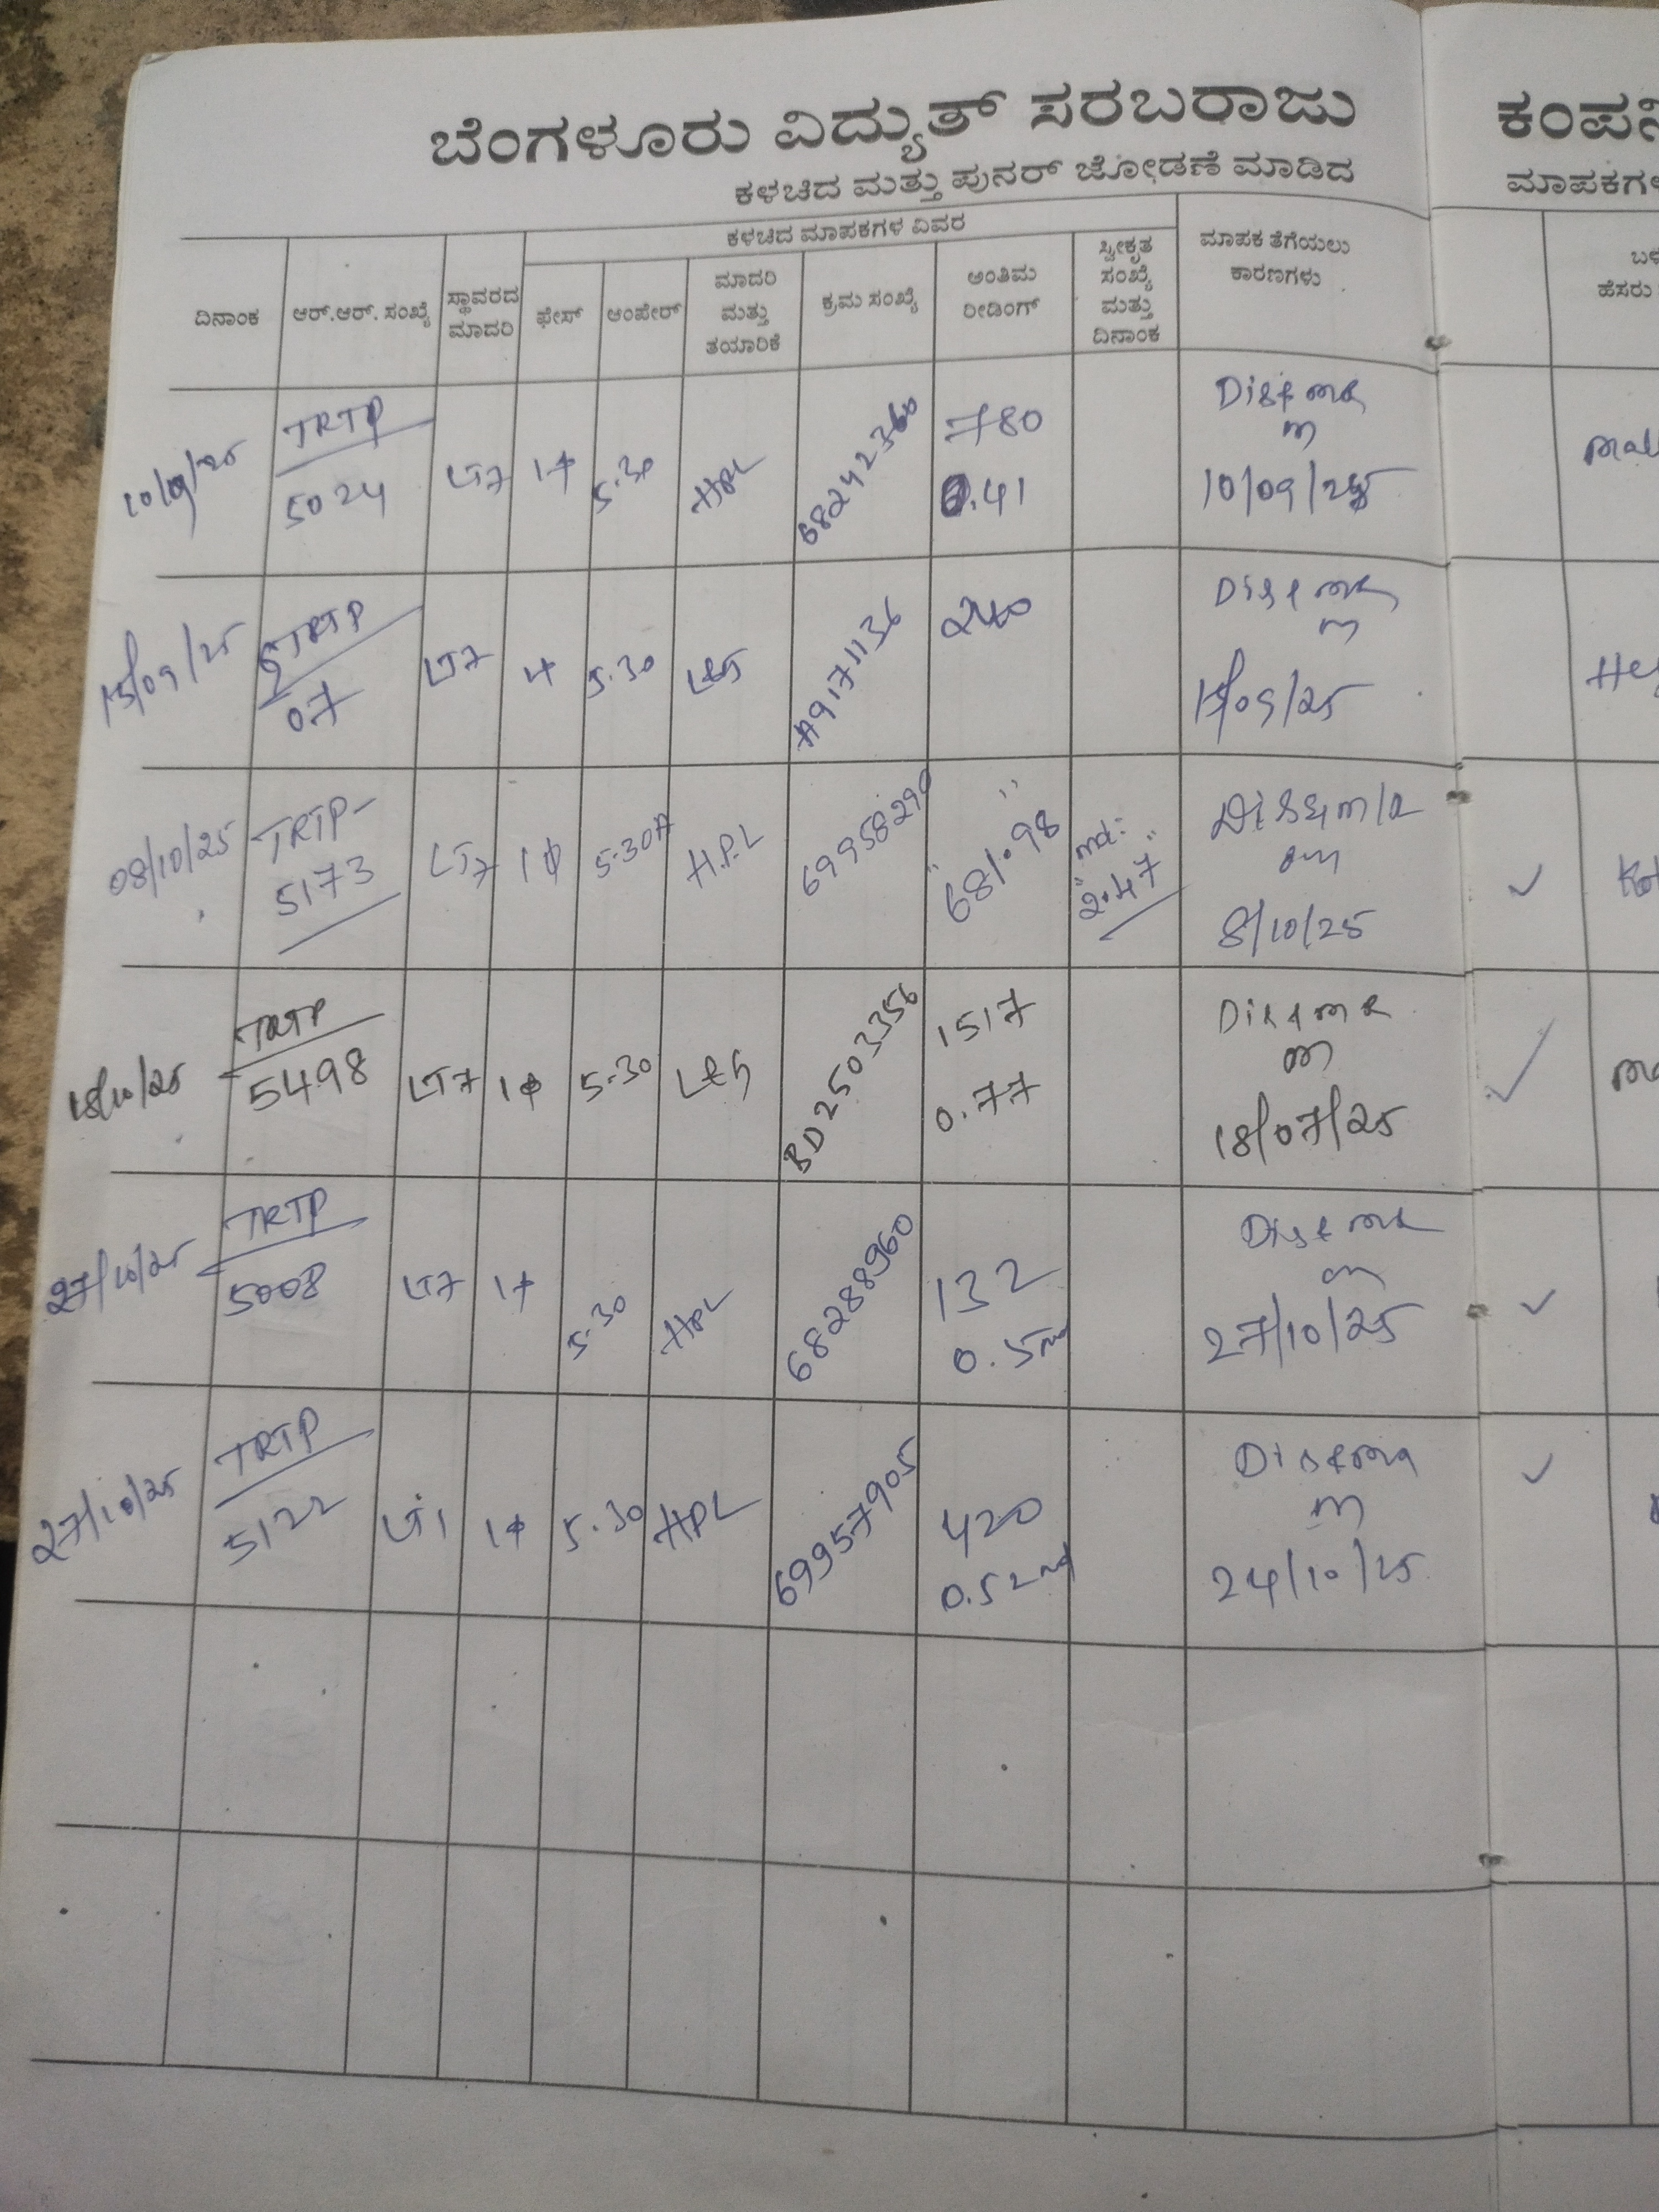 ಬೆಂಗಳೂರು ವಿದ್ಯುತ್ ಸರಬರಾಜು ಕಂಪನಿ
ಕಳಚಿದ ಮತ್ತು ಪುನರ್ ಜೋಡಣೆ ಮಾಡಿದ ಮಾಪಕಗಳ
ಕಳಚಿದ ಮಾಪಕಗಳ ವಿವರ
ದಿನಾಂಕ
ಆರ್.ಆರ್. ಸಂಖ್ಯೆ
ಸ್ಥಾವರದ
ಮಾದರಿ
ಫೇಸ್
ಆಂಪೇರ್
ಮಾದರಿ
ಮತ್ತು
ತಯಾರಿಕೆ
ಕ್ರಮ ಸಂಖ್ಯೆ
ಅಂತಿಮ
ರೀಡಿಂಗ್
ಸ್ವೀಕೃತ
ಸಂಖ್ಯೆ
ಮತ್ತು
ದಿನಾಂಕ
ಮಾಪಕ ತೆಗೆಯಲು
ಕಾರಣಗಳು
ಹೆಸರು
10/09/25
TRTP
5024
LT7
1φ
5-30
HPL
68242360
780
0.41
10/09/25
15/09/25
TRTP
07
LT7
5-30
L&G
A9171136
240
15/09/25
08/10/25
TRTP-
5173
LT7
1φ
5-30A
H.P.L
69958290
"681.98"
md:-
"2.47"
8/10/25
18/10/25
TRTP
5498
LT7
1φ
5-30
L&G
BD2503356
1517
0.77
18/07/25
27/10/25
TRTP
5008
LT7
1φ
5-30
HPL
68288960
132
0.5md
27/10/25
27/10/25
TRTP
5122
LT1
1φ
5-30
HPL
69957905
420
0.52md
24/10/25